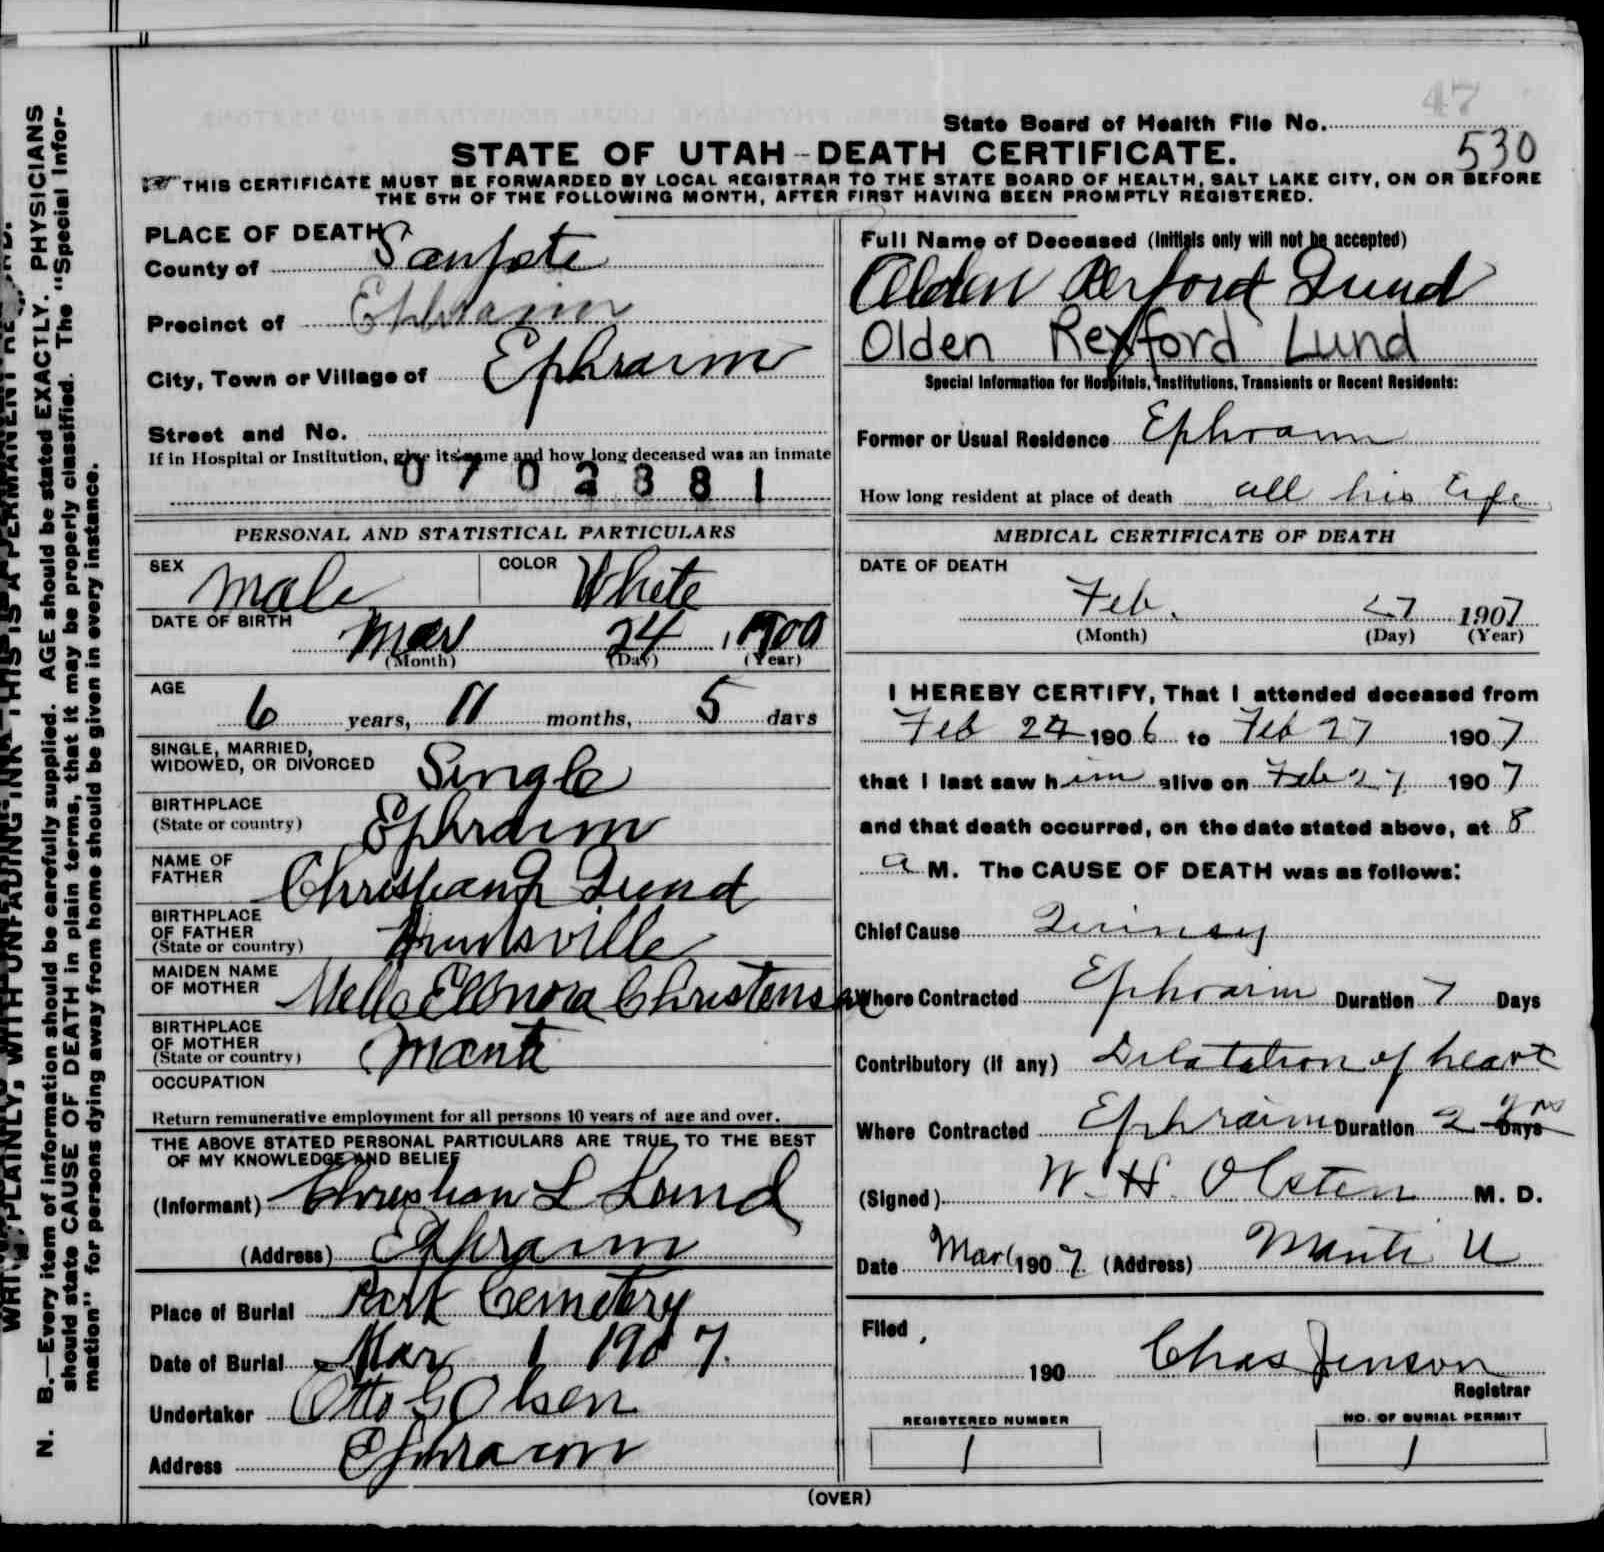 47
State Board of Health File No.
530
STATE OF UTAH--DEATH CERTIFICATE.
THIS CERTIFICATE MUST BE FORWARDED BY LOCAL REGISTRAR TO THE STATE BOARD OF HEALTH, SALT LAKE CITY, ON OR BEFORE
THE 5TH OF THE FOLLOWING MONTH, AFTER FIRST HAVING BEEN PROMPTLY REGISTERED.
PLACE OF DEATH
County of Sanpete
Precinct of Ephraim
City, Town or Village of Ephraim
Street and No.
If in Hospital or Institution, give its name and how long deceased was an inmate
0702381
PERSONAL AND STATISTICAL PARTICULARS
SEX Male COLOR White
DATE OF BIRTH
Mar 24 1900
(Month) (Day) (Year)
AGE
6 years, 11 months, 5 days
SINGLE, MARRIED,
WIDOWED, OR DIVORCED Single
BIRTHPLACE
(State or country) Ephraim
NAME OF
FATHER Christian L Lund
BIRTHPLACE
OF FATHER
(State or country) Huntsville
MAIDEN NAME
OF MOTHER Ellenora Christensen
BIRTHPLACE
OF MOTHER
(State or country) Manti
OCCUPATION
Return remunerative employment for all persons 10 years of age and over.
THE ABOVE STATED PERSONAL PARTICULARS ARE TRUE TO THE BEST
OF MY KNOWLEDGE AND BELIEF
(Informant) Christian L Lund
(Address) Ephraim
Place of Burial Park Cemetery
Date of Burial Mar 1 1907.
Undertaker Otto G Olsen
Address Ephraim
Full Name of Deceased (Initials only will not be accepted)
Olden Rexford Lund
Olden Rexford Lund
Special Information for Hospitals, Institutions, Transients or Recent Residents:
Former or Usual Residence Ephraim
How long resident at place of death all his life
MEDICAL CERTIFICATE OF DEATH
DATE OF DEATH
Feb. 27 1907
(Month) (Day) (Year)
I HEREBY CERTIFY, That I attended deceased from
Feb 24 1906 to Feb 27 1907
that I last saw him alive on Feb 27 1907
and that death occurred, on the date stated above, at 8
a M. The CAUSE OF DEATH was as follows:
Chief Cause Quinsy
Where Contracted Ephraim Duration 7 Days
Contributory (if any) Dilatation of heart
Where Contracted Ephraim Duration 2 Days yrs
(Signed) W. H. Olsten M. D.
Date Mar 1 1907. (Address) Manti U
Filed,
190 Chas Jenson
Registrar
REGISTERED NUMBER
1
NO. OF BURIAL PERMIT
1
(OVER)
N. B.—Every item of information should be carefully supplied. AGE should be stated EXACTLY. PHYSICIANS
should state CAUSE OF DEATH in plain terms, that it may be properly classified. The "Special Infor-
mation" for persons dying away from home should be given in every instance.
PLAINLY, WITH UNFADING INK—THIS IS A PERMANENT